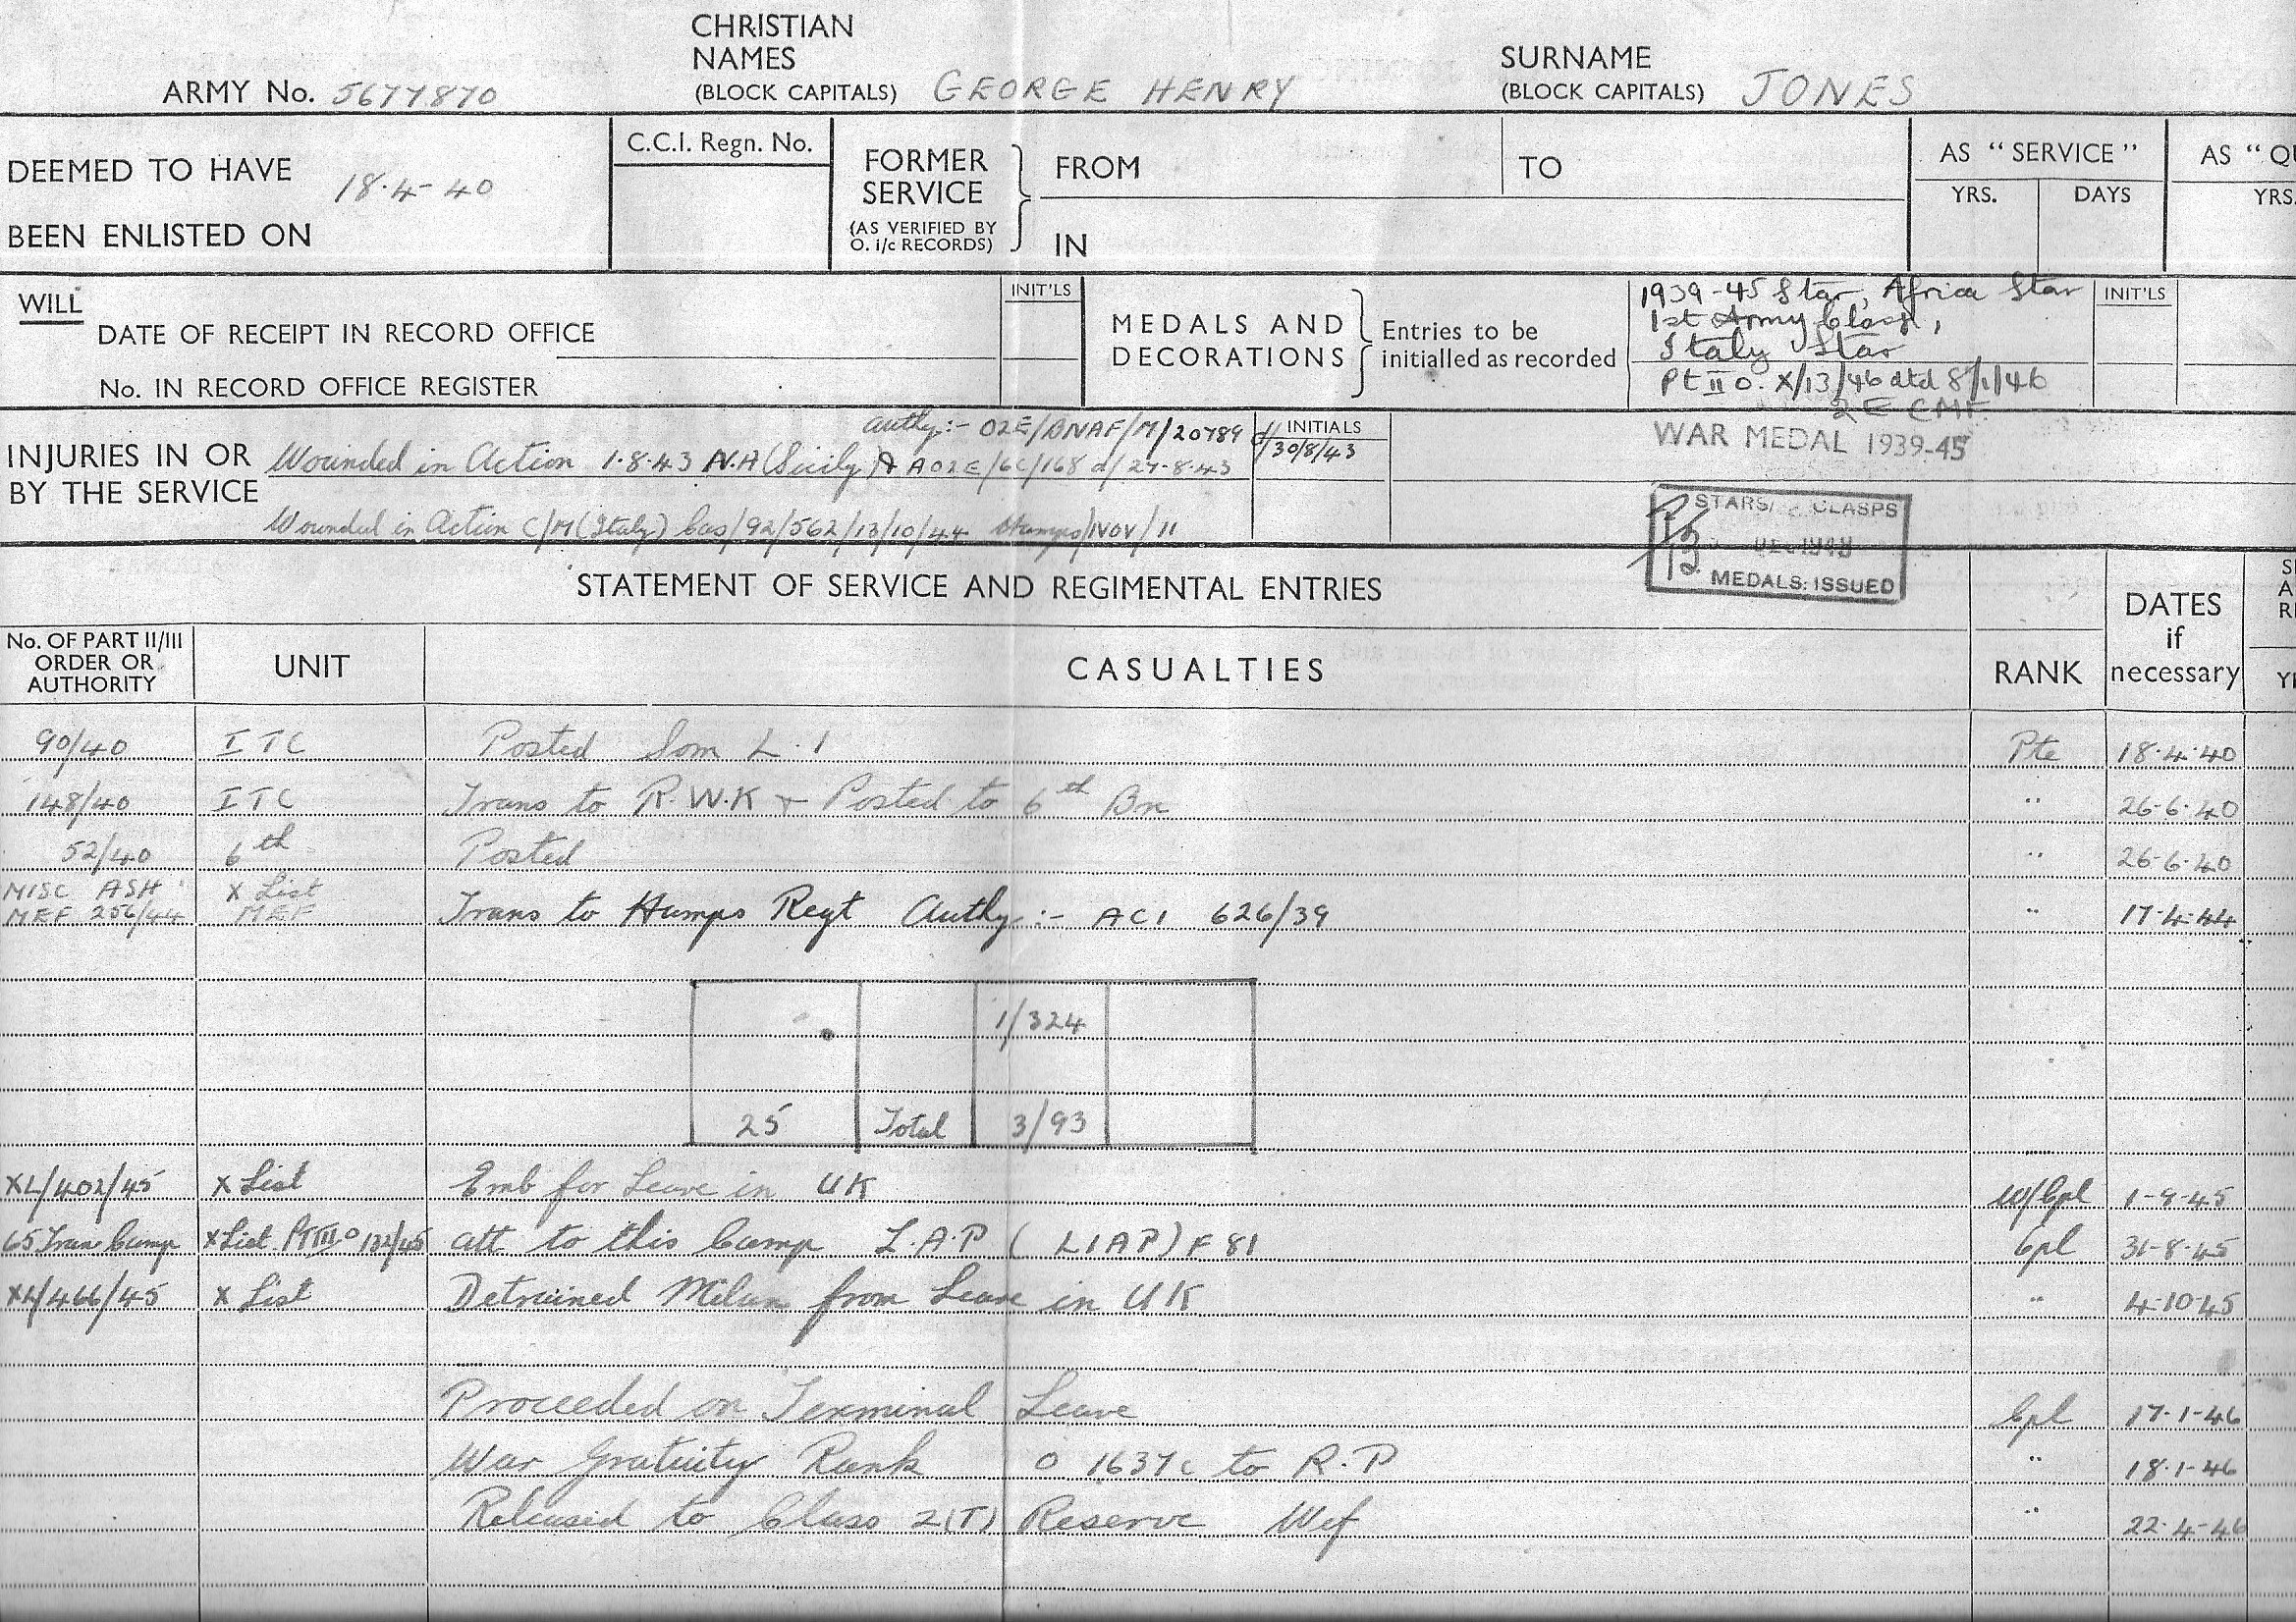 CHRISTIAN
NAMES
(BLOCK CAPITALS) GEORGE HENRY
SURNAME
(BLOCK CAPITALS) JONES
ARMY No. 5677870
DEEMED TO HAVE
BEEN ENLISTED ON
18.4-40
C.C.I. Regn. No.
FORMER
SERVICE
(AS VERIFIED BY
O. i/c RECORDS)
FROM
TO
IN
AS "SERVICE"
YRS. DAYS
AS "QU
YRS.
WILL
DATE OF RECEIPT IN RECORD OFFICE
No. IN RECORD OFFICE REGISTER
INIT'LS
MEDALS AND
DECORATIONS
Entries to be
initialled as recorded
1939-45 Star, Africa Star
1st Army Clasp,
Italy Star
Pt II O. X/13/46 dtd 8/1/46
2E CMF
INIT'LS
WAR MEDAL 1939-45
INJURIES IN OR
BY THE SERVICE
Authy:- 02E/BNAF/M/20789 d/30/8/43
Wounded in Action 1.8.43 N.A (Sicily) & A02E/6C/168 d/27-8-43
Wounded in Action C/M (Italy) Cas/92/562/13/10/44 /Nov/11
INITIALS
STARS, CLASPS
MEDALS: ISSUED
STATEMENT OF SERVICE AND REGIMENTAL ENTRIES
No. OF PART II/III
ORDER OR
AUTHORITY
UNIT
CASUALTIES
RANK
DATES
if
necessary
90/40 ITC Posted Som L.I Pte 18.4.40
148/40 ITC Trans to R.W.K + Posted to 6th Bn " 26-6-40
52/40 6th Posted " 26-6-40
MISC ASH X List
MEF 256/44 MEF Trans to Hamps Regt Authy:- ACI 626/39 " 17-4-44
1/324
25 Total 3/93
XL/402/45 X List Emb for Leave in UK W/Cpl 1-9-45
65 Tran Camp X List Pt III O 132/45 att to this Camp L.A.P (LIAP) F 81 Cpl 31-8-45
XL/466/45 X List Detrained Milan from Leave in UK " 4-10-45
Proceeded on Terminal Leave Cpl 17-1-46
War Gratuity Rank O 1637c to R.P " 18-1-46
Released to Class 2(T) Reserve Wef " 22-4-46